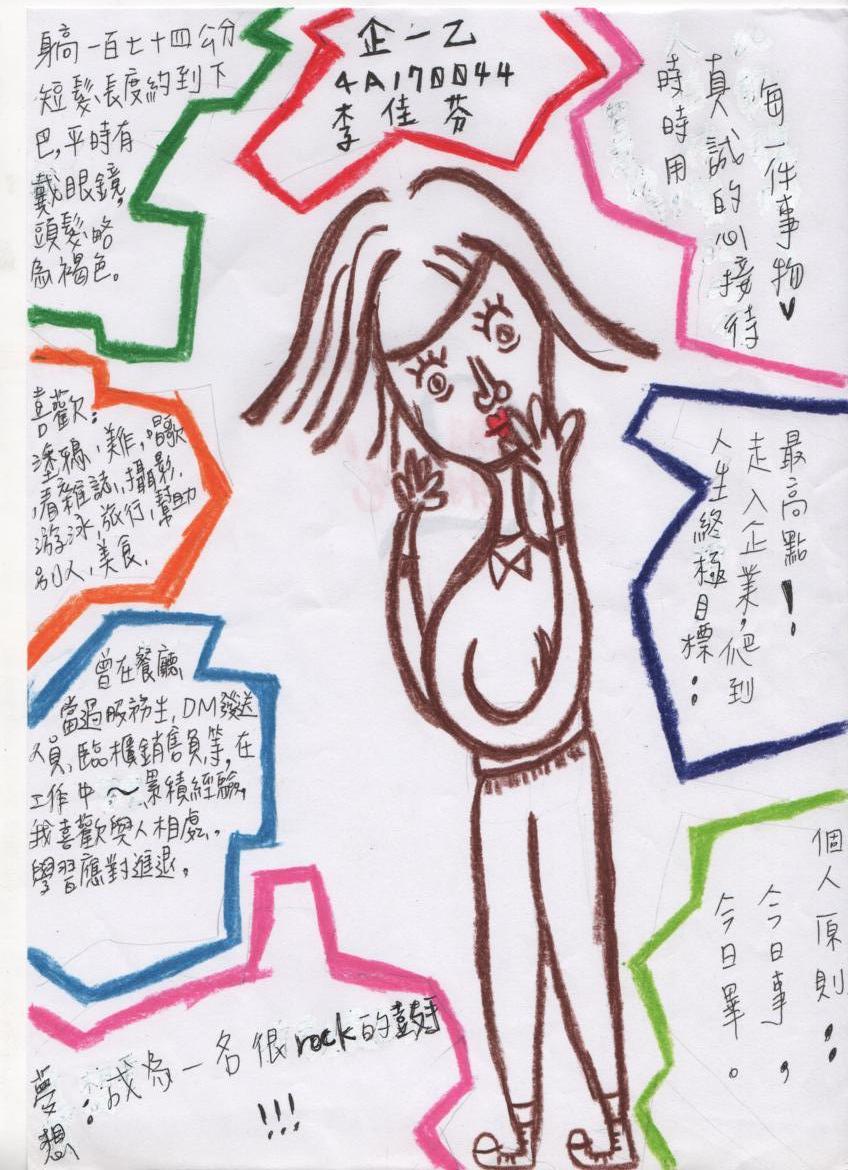 企一乙
4A170044
李佳芬
身高一百七十四公分
短髮長度約到下
巴,平時有
戴眼鏡,
頭髮略
為褐色。
喜歡:
塗鴉,雞,唱歌
,看雜誌,攝影,
游泳,旅行,幫助
別人,美食,
曾在餐廳
當過服務生,DM發送
人員,臨櫃銷售員等,在
工作中~累積經驗,
我喜歡與人相處,
學習應對進退。
夢想:成為一名很rock的鼓手
!!!
時時用
真誠的心接待
每一件事物♥
人生終極目標:
走入企業,爬到
最高點!
個人原則:
今日事,
今日畢。